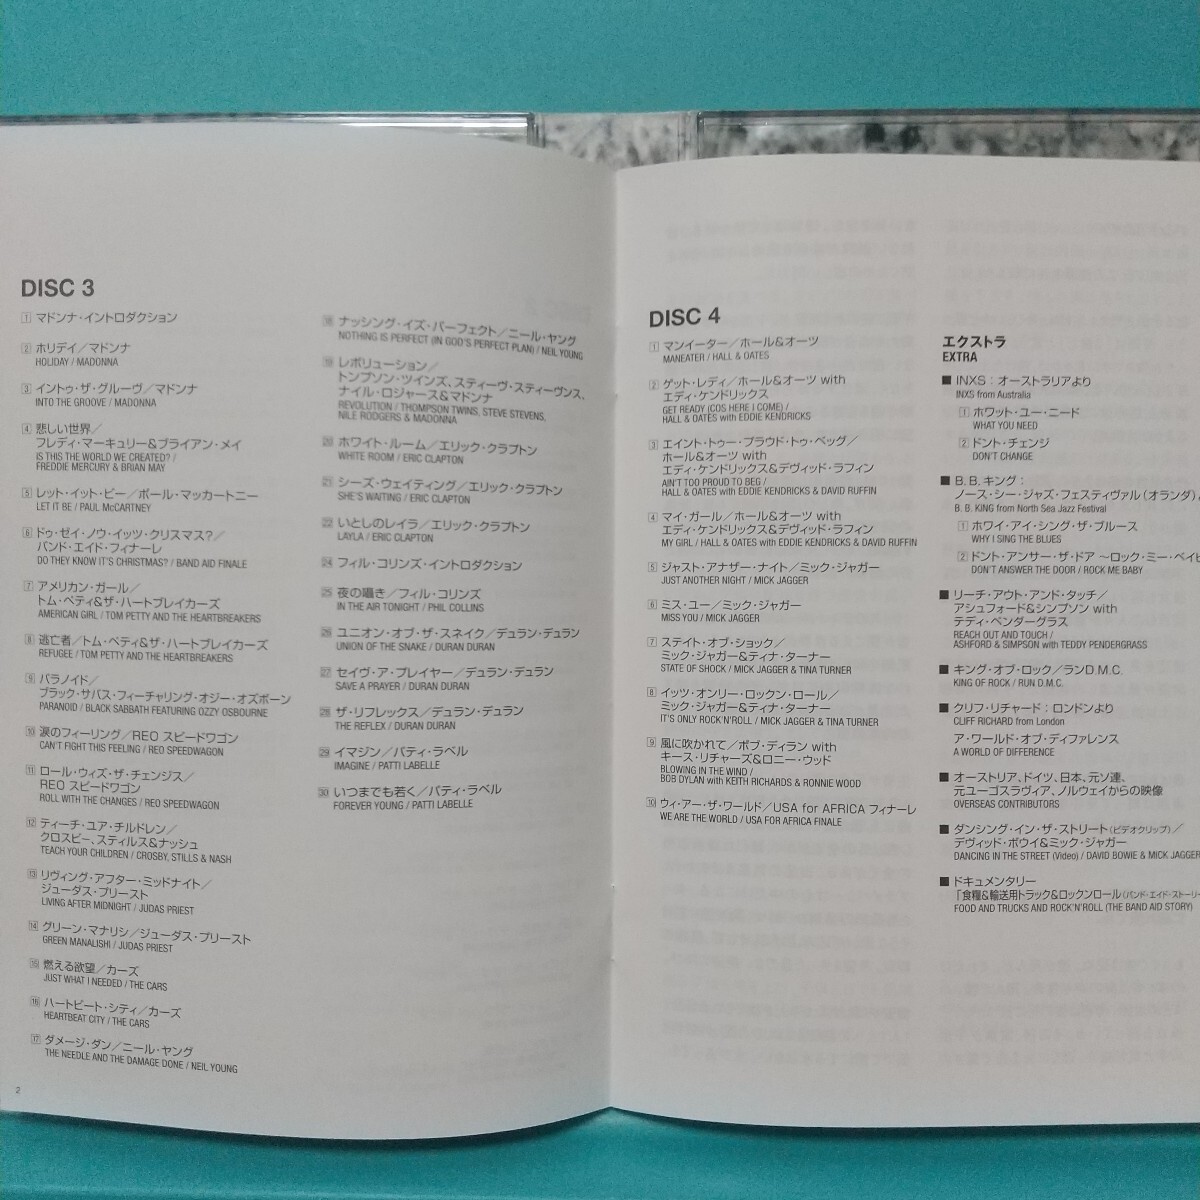 DISC 3
1 マドンナ・イントロダクション
2 ホリデイ／マドンナ
HOLIDAY / MADONNA
3 イントゥ・ザ・グルーヴ／マドンナ
INTO THE GROOVE / MADONNA
4 悲しい世界／
フレディ・マーキュリー&ブライアン・メイ
IS THIS THE WORLD WE CREATED? /
FREDDIE MERCURY & BRIAN MAY
5 レット・イット・ビー／ポール・マッカートニー
LET IT BE / PAUL McCARTNEY
6 ドゥ・ゼイ・ノウ・イッツ・クリスマス？／
バンド・エイド・フィナーレ
DO THEY KNOW IT'S CHRISTMAS? / BAND AID FINALE
7 アメリカン・ガール／
トム・ペティ&ザ・ハートブレイカーズ
AMERICAN GIRL / TOM PETTY AND THE HEARTBREAKERS
8 逃亡者／トム・ペティ&ザ・ハートブレイカーズ
REFUGEE / TOM PETTY AND THE HEARTBREAKERS
9 パラノイド／
ブラック・サバス・フィーチャリング・オジー・オズボーン
PARANOID / BLACK SABBATH FEATURING OZZY OSBOURNE
10 涙のフィーリング／REO スピードワゴン
CAN'T FIGHT THIS FEELING / REO SPEEDWAGON
11 ロール・ウィズ・ザ・チェンジス／
REO スピードワゴン
ROLL WITH THE CHANGES / REO SPEEDWAGON
12 ティーチ・ユア・チルドレン／
クロスビー、スティルス&ナッシュ
TEACH YOUR CHILDREN / CROSBY, STILLS & NASH
13 リヴィング・アフター・ミッドナイト／
ジューダス・プリースト
LIVING AFTER MIDNIGHT / JUDAS PRIEST
14 グリーン・マナリシ／ジューダス・プリースト
GREEN MANALISHI / JUDAS PRIEST
15 燃える欲望／カーズ
JUST WHAT I NEEDED / THE CARS
16 ハートビート・シティ／カーズ
HEARTBEAT CITY / THE CARS
17 ダメージ・ダン／ニール・ヤング
THE NEEDLE AND THE DAMAGE DONE / NEIL YOUNG
2
18 ナッシング・イズ・パーフェクト／ニール・ヤング
NOTHING IS PERFECT (IN GOD'S PERFECT PLAN) / NEIL YOUNG
19 レボリューション／
トンプソン・ツインズ、スティーヴ・スティーヴンス、
ナイル・ロジャース&マドンナ
REVOLUTION / THOMPSON TWINS, STEVE STEVENS,
NILE RODGERS & MADONNA
20 ホワイト・ルーム／エリック・クラプトン
WHITE ROOM / ERIC CLAPTON
21 シーズ・ウェイティング／エリック・クラプトン
SHE'S WAITING / ERIC CLAPTON
22 いとしのレイラ／エリック・クラプトン
LAYLA / ERIC CLAPTON
24 フィル・コリンズ・イントロダクション
25 夜の囁き／フィル・コリンズ
IN THE AIR TONIGHT / PHIL COLLINS
26 ユニオン・オブ・ザ・スネイク／デュラン・デュラン
UNION OF THE SNAKE / DURAN DURAN
27 セイヴ・ア・プレイヤー／デュラン・デュラン
SAVE A PRAYER / DURAN DURAN
28 ザ・リフレックス／デュラン・デュラン
THE REFLEX / DURAN DURAN
29 イマジン／パティ・ラベル
IMAGINE / PATTI LABELLE
30 いつまでも若く／パティ・ラベル
FOREVER YOUNG / PATTI LABELLE
DISC 4
1 マンイーター／ホール&オーツ
MANEATER / HALL & OATES
2 ゲット・レディ／ホール&オーツ with
エディ・ケンドリックス
GET READY (COS HERE I COME) /
HALL & OATES with EDDIE KENDRICKS
3 エイント・トゥー・プラウド・トゥ・ベッグ／
ホール&オーツ with
エディ・ケンドリックス&デヴィッド・ラフィン
AIN'T TOO PROUD TO BEG /
HALL & OATES with EDDIE KENDRICKS & DAVID RUFFIN
4 マイ・ガール／ホール&オーツ with
エディ・ケンドリックス&デヴィッド・ラフィン
MY GIRL / HALL & OATES with EDDIE KENDRICKS & DAVID RUFFIN
5 ジャスト・アナザー・ナイト／ミック・ジャガー
JUST ANOTHER NIGHT / MICK JAGGER
6 ミス・ユー／ミック・ジャガー
MISS YOU / MICK JAGGER
7 ステイト・オブ・ショック／
ミック・ジャガー&ティナ・ターナー
STATE OF SHOCK / MICK JAGGER & TINA TURNER
8 イッツ・オンリー・ロックン・ロール／
ミック・ジャガー&ティナ・ターナー
IT'S ONLY ROCK'N'ROLL / MICK JAGGER & TINA TURNER
9 風に吹かれて／ボブ・ディラン with
キース・リチャーズ&ロニー・ウッド
BLOWING IN THE WIND /
BOB DYLAN with KEITH RICHARDS & RONNIE WOOD
10 ウィ・アー・ザ・ワールド／USA for AFRICA フィナーレ
WE ARE THE WORLD / USA FOR AFRICA FINALE
エクストラ
EXTRA
■ INXS：オーストラリアより
INXS from Australia
1 ホワット・ユー・ニード
WHAT YOU NEED
2 ドント・チェンジ
DON'T CHANGE
■ B. B. キング：
ノース・シー・ジャズ・フェスティヴァル（オランダ）
B. B. KING from North Sea Jazz Festival
1 ホワイ・アイ・シング・ザ・ブルース
WHY I SING THE BLUES
2 ドント・アンサー・ザ・ドア ～ロック・ミー・ベイビ
DON'T ANSWER THE DOOR / ROCK ME BABY
■ リーチ・アウト・アンド・タッチ／
アシュフォード&シンプソン with
テディ・ペンダーグラス
REACH OUT AND TOUCH /
ASHFORD & SIMPSON with TEDDY PENDERGRASS
■ キング・オブ・ロック／ランD.M.C.
KING OF ROCK / RUN D.M.C.
■ クリフ・リチャード：ロンドンより
CLIFF RICHARD from London
ア・ワールド・オブ・ディファレンス
A WORLD OF DIFFERENCE
■ オーストリア、ドイツ、日本、元ソ連、
元ユーゴスラヴィア、ノルウェイからの映像
OVERSEAS CONTRIBUTORS
■ ダンシング・イン・ザ・ストリート（ビデオクリップ）／
デヴィッド・ボウイ&ミック・ジャガー
DANCING IN THE STREET (Video) / DAVID BOWIE & MICK JAGGER
■ ドキュメンタリー
「食糧&輸送用トラック&ロックンロール（バンド・エイド・ストーリー
FOOD AND TRUCKS AND ROCK'N'ROLL (THE BAND AID STORY)